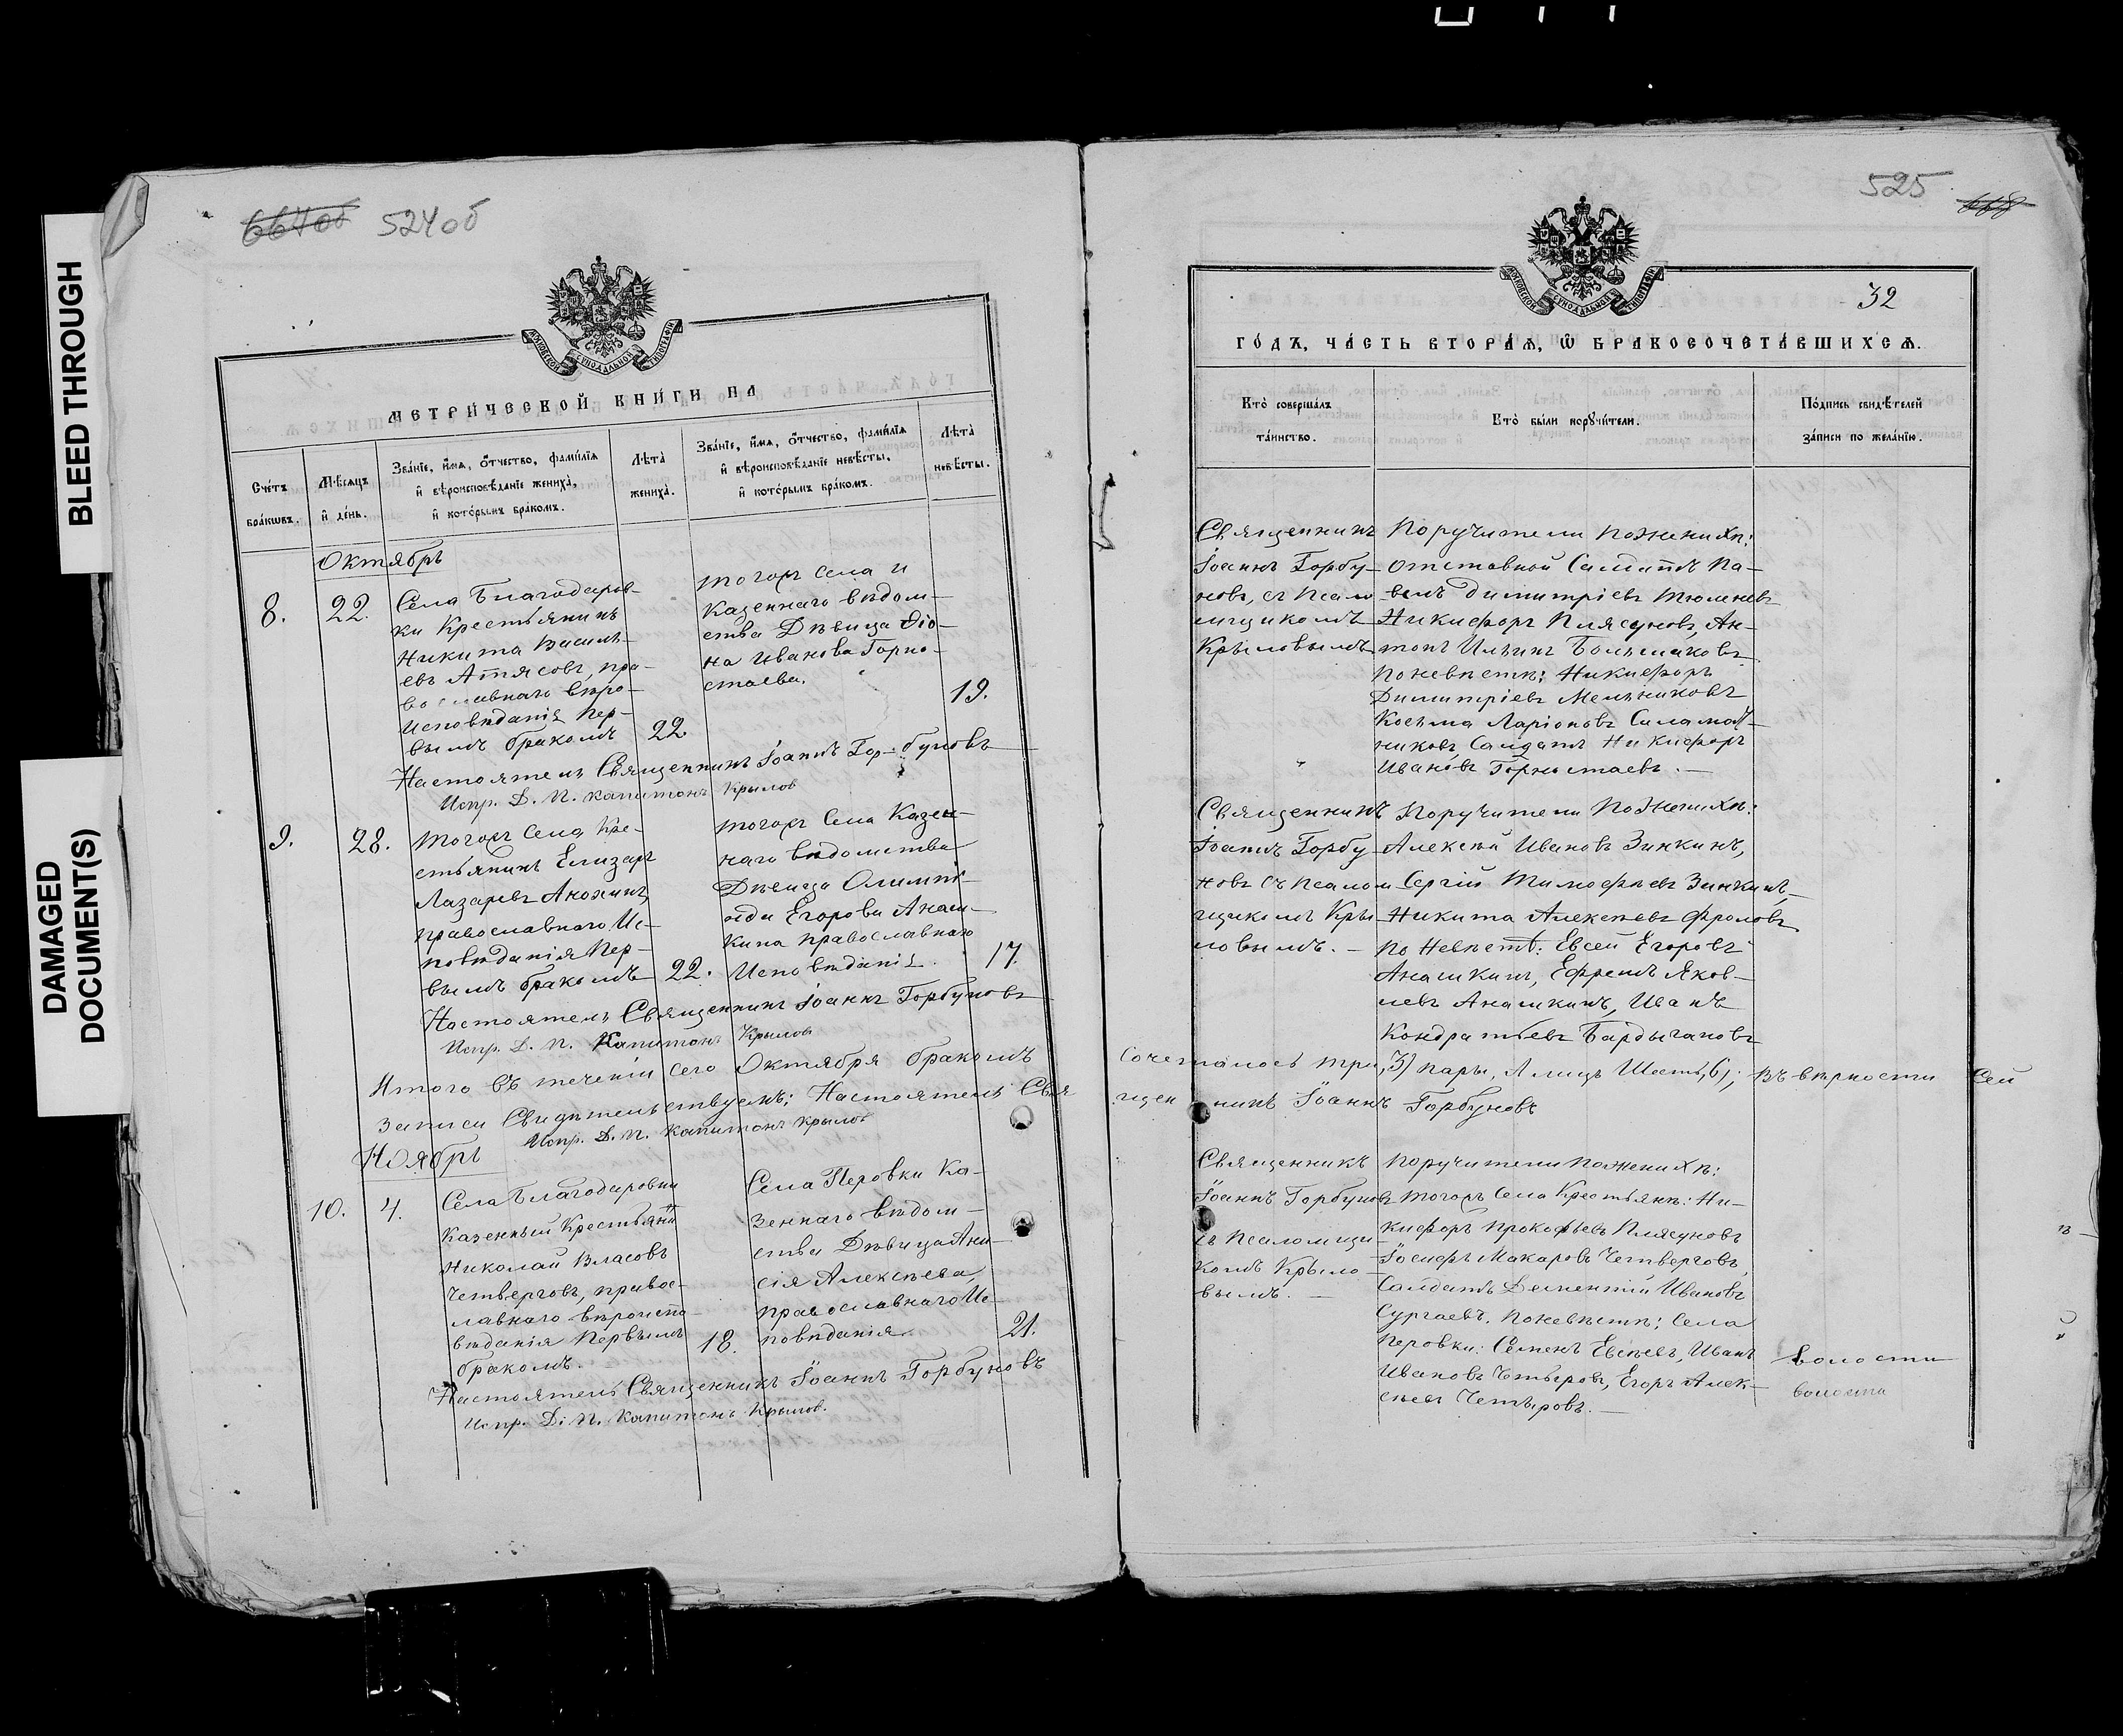 BLEED THROUGH
DAMAGED
DOCUMENT(S)
667об 524об
МОСКОВСКОЙ СѴНОДАЛЬНОЙ ТИПОГРАФІИ
МЕТРИ́ЧЕСКОЙ КНИ́ГИ НА
Сче́тъ
бра́кωвъ.
Мѣ́сѧцъ
и҆ де́нь.
Зва́нїе, и҆́мѧ, ѻ҆́тчество, фами́лїѧ
и҆ вѣроисповѣ́данїе жениха̀,
и҆ кото́рымъ бра́комъ.
Лѣ́та
жениха̀.
Зва́нїе, и҆́мѧ, ѻ҆́тчество, фами́лїѧ
и҆ вѣроисповѣ́данїе невѣ́сты,
и҆ кото́рымъ бра́комъ.
Лѣ́та
невѣ́сты.
Октябрь
8.
22.
Села Благодаров-
ки Крестьянинъ
Никита Василь-
евъ Атясовъ, пра-
вославнаго вѣро-
исповѣданія пер-
вымъ бракомъ
22.
тогожъ села и
казеннаго вѣдом-
ства Дѣвица Ѳіо-
на Иванова Горно-
стаева.
19.
Настоятель Священникъ Іоаннъ Горбуновъ
Испр. Д. П. Капитонъ Крылов
9.
28.
тогожъ села Кре-
стьянинъ Елизаръ
Лазаревъ Анохинъ
православнаго Ис-
повѣданія Пер-
вымъ бракомъ
22.
тогожъ села Казен-
наго вѣдомства
Дѣвица Олимпі-
ада Егорова Анаш-
кина православнаго
Исповѣданія.
17.
Настоятель Священникъ Іоаннъ Горбуновъ
Испр. Д. П. Капитонъ Крылов
Итого въ теченіи сего Октября бракомъ
записи Свидѣтельствуемъ; Настоятель Свя
Испр. Д. П. Капитонъ Крылов
Ноябрь
10.
4.
Села Благодаровки
Казенный Крестьянинъ
Николай Власовъ
Четверговъ, правос-
лавнаго вѣроиспо-
вѣданія Первымъ
бракомъ.
18.
Села Перовки Ка-
зеннаго вѣдом-
ства Дѣвица Ани-
сія Алексѣева,
православнаго Ис-
повѣданія
21.
Настоятель Священникъ Іоаннъ Горбуновъ
Испр. Д. П. Капитонъ Крылов.
525
668
МОСКОВСКОЙ СѴНОДАЛЬНОЙ ТИПОГРАФІИ
32
ГО́ДЪ, ЧА́СТЬ ВТОРА́Ѧ, Ѡ҆ БРАКОСОЧЕТА́ВШИХСѦ.
Кто̀ соверша́лъ
та́инство.
Кто̀ бы́ли порꙋчи́тели.
По́дпись свидѣ́телей
за́писи по жела́нїю.
Священникъ
Іоаннъ Горбу-
новъ, съ Псалом-
щикомъ
Крыловымъ
Поручители по женихѣ:
отставной Салдатъ Па-
велъ Димитріевъ Тюленевъ
Никифоръ Плясуновъ, Ан-
тонъ Ильинъ Большаковъ
по невѣстѣ: Никифоръ
Димитріевъ Мельниковъ
Косьма Ларіоновъ Саламат-
никовъ, Салдатъ Никифоръ
Ивановъ Горностаевъ. —
Священникъ
Іоаннъ Горбу-
новъ съ псалом-
щикомъ Кры-
ловымъ. —
Поручители по женихѣ:
Алексѣй Ивановъ Зинкинъ,
Сергій Тимофѣевъ Зинкинъ,
Никита Алексѣевъ Фроловъ
по Невѣстѣ: Евсей Егоровъ
Анашкинъ, Ефремъ Яков-
левъ Анашкинъ, Иванъ
Кондратьевъ Бардычановъ
Сочеталось три, 3) пары, А лицъ Шесть, 6); Въ вѣрности Сей
щенникъ Іоаннъ Горбуновъ
Священникъ
Іоаннъ Горбуновъ
съ Псаломщи-
комъ Крыло-
вымъ. —
Поручители по женихѣ:
тогожъ Села Крестьяне: Ни-
кифоръ Прокофьевъ Плясуновъ
Іосифъ Макаровъ Четверговъ,
Салдатъ Дементій Ивановъ
Сургаевъ. по невѣстѣ: Села
Перовки: Семенъ Евсѣевъ, Иванъ
Ивановъ Четыровъ, Егоръ Алек-
сѣевъ Четыровъ. —
волости
волости